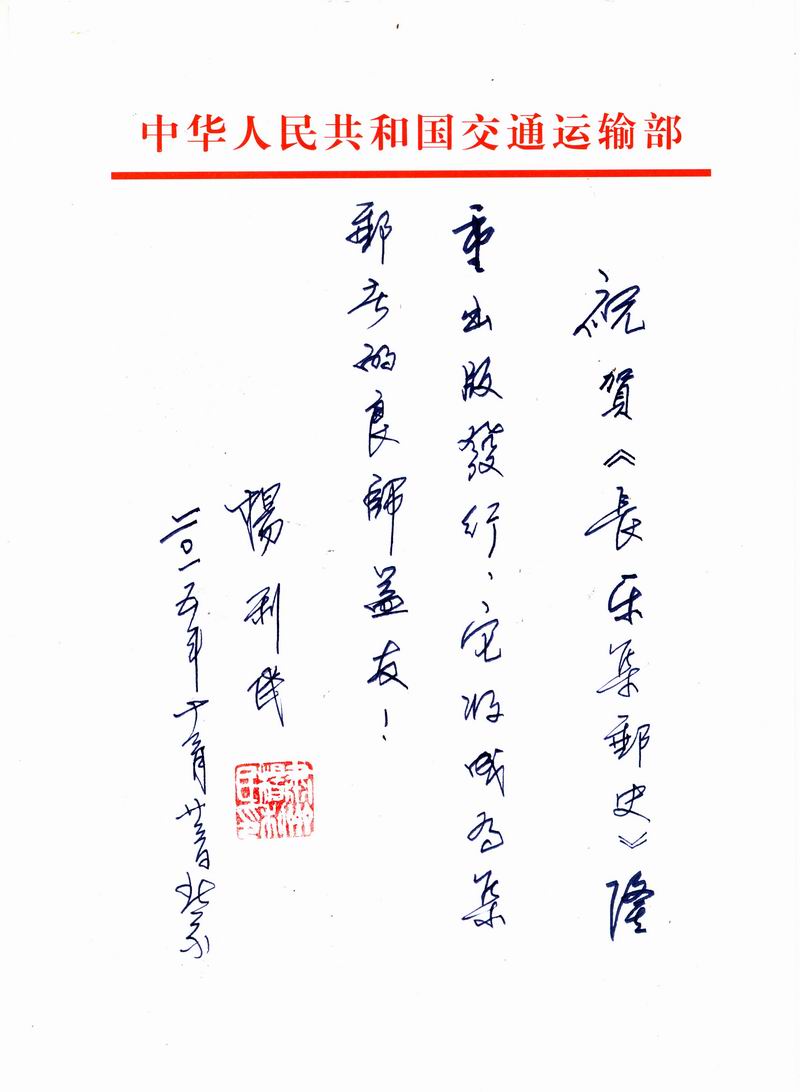 中华人民共和国交通运输部
祝賀《長乐集郵史》隆
重出版發行，它将成为集
郵者的良師益友！
楊利民
二〇一五年十月廿日北京